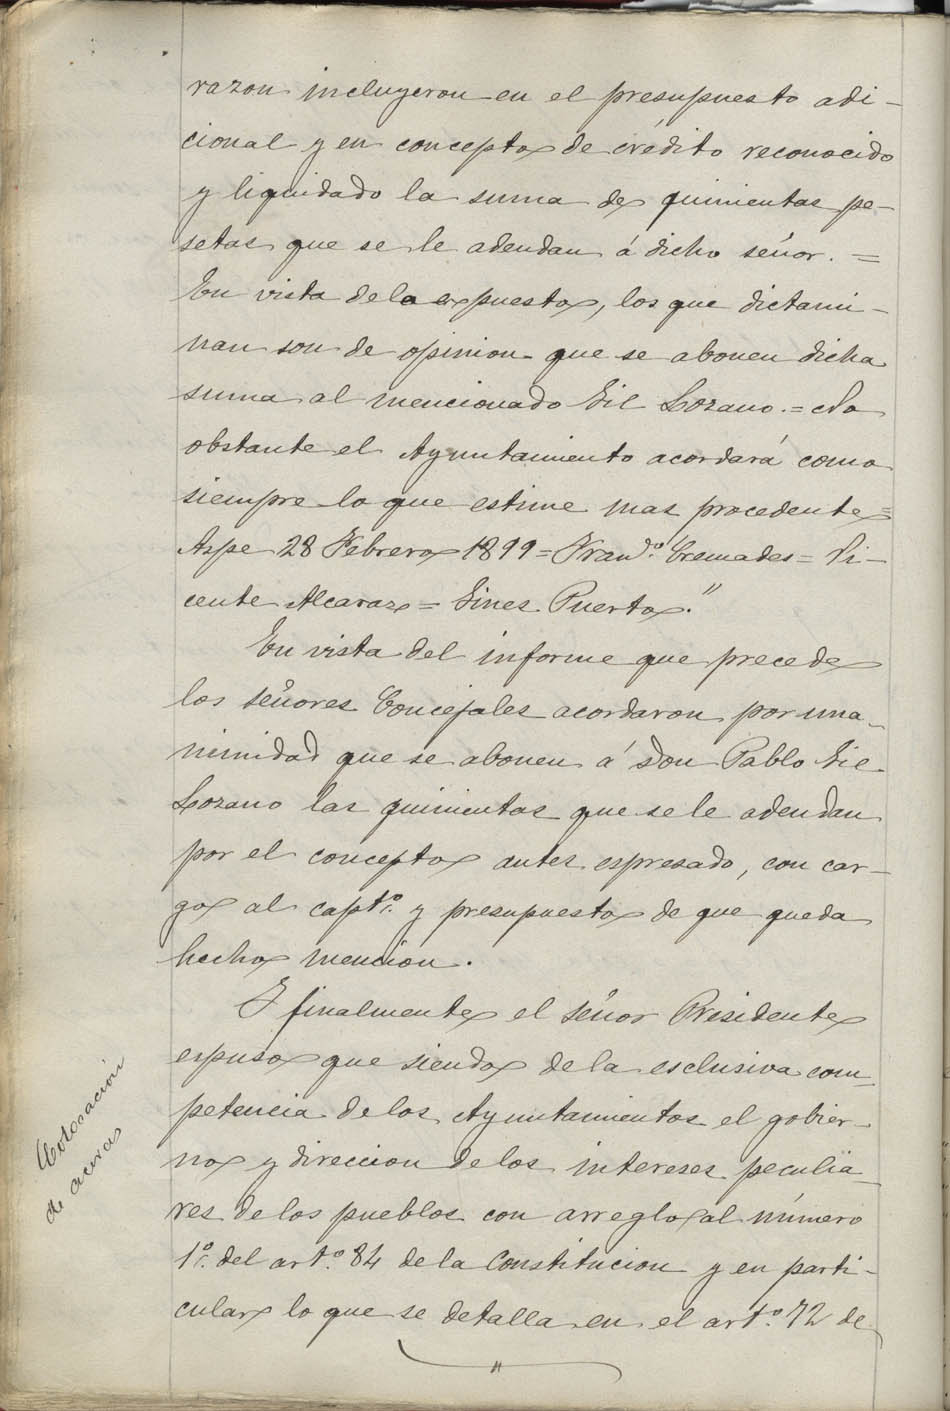 razon incluyeron en el presupuesto adi-
cional y en concepto de crédito reconocido
y liquidado la suma de quinientas pe-
setas que se le adeudan á dicho señor. =
En vista de lo expuesto, los que dictami-
nan son de opinion que se abonen dicha
suma al mencionado Gil Lozano. = No
obstante el Ayuntamiento acordará como
siempre lo que estime mas procedente =
Aspe 28 Febrero 1899 = Franco. Cremades = Vi-
cente Alcaraz = Gines Puerto."
En vista del informe que precede
los señores Concejales acordaron por una-
nimidad que se abonen á Don Pablo Gil
Lozano las quinientas que se le adeudan
por el concepto antes espresado, con car-
go al capto. y presupuesto de que queda
hecho mencion.
Y finalmente el señor Presidente
espuso que siendo de la esclusiva com
petencia de los Ayuntamientos el gobier-
no y direccion de los intereses peculia-
res de los pueblos con arreglo al número
1º. del arto. 84 de la Constitucion y en parti-
cular lo que se detalla en el arto. 72 de
Colocación
de aceras